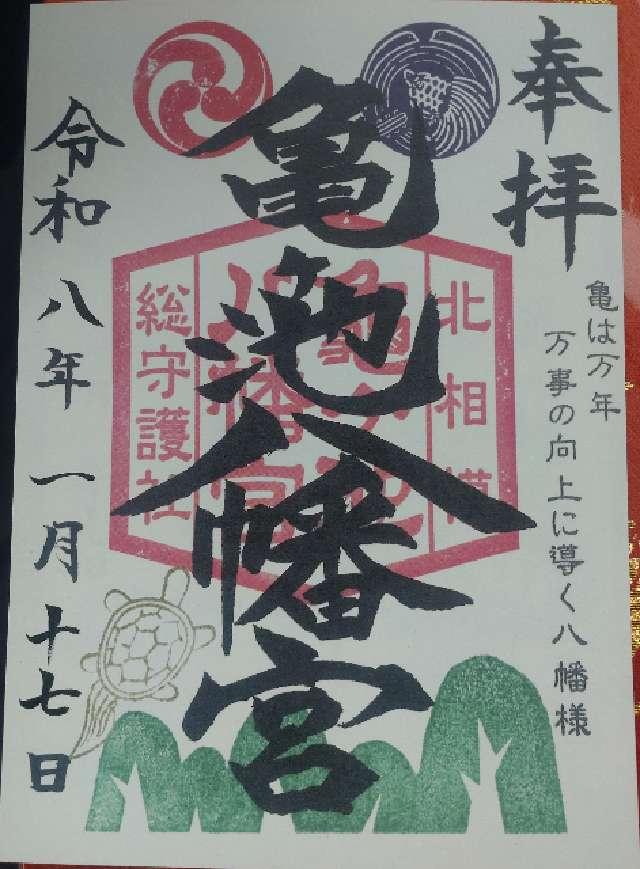 奉拝
亀は万年
万事の向上に導く八幡様
北相模
総守護社
亀池八幡宮
令和八年一月十七日